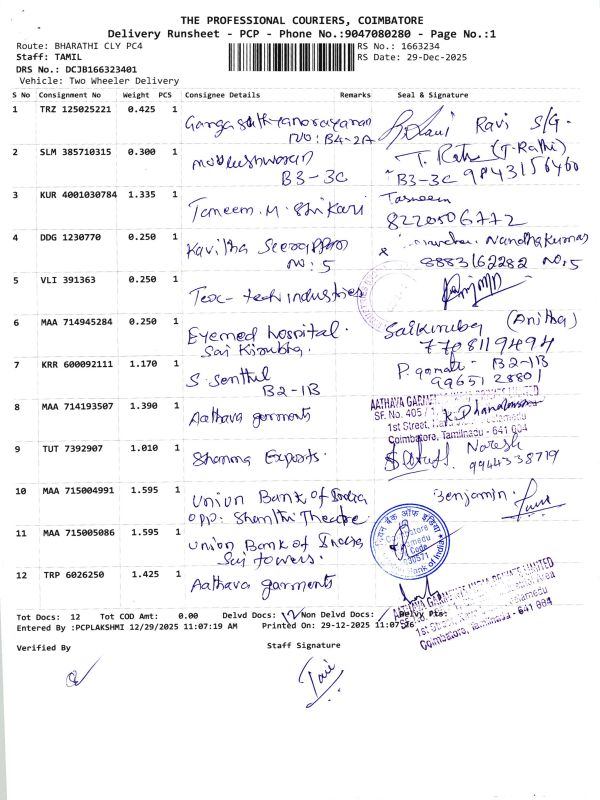 THE PROFESSIONAL COURIERS, COIMBATORE
Delivery Runsheet - PCP - Phone No.:9047080280 - Page No.:1
Route: BHARATHI CLY PC4
RS No.: 1663234
Staff: TAMIL
RS Date: 29-Dec-2025
DRS No.: DCJB166323401
Vehicle: Two Wheeler Delivery
S No Consignment No Weight PCS Consignee Details Remarks Seal & Signature
1 TRZ 125025221 0.425 1 Ravi S/G.
NO: B4-2A
2 SLM 385710315 0.300 1 T. Rathi (T-Rathi)
B3-3C B3-3C 9843156460
3 KUR 4001030784 1.335 1 Tameem.M. Shikari Tasneem
8220506772
4 DDG 1230770 0.250 1 Kavitha Nandhakumar
NO: 5 8883162282 NO:5
5 VLI 391363 0.250 1 Tex-tech industries
6 MAA 714945284 0.250 1 Eyemed hospital. Saikiruba (Anitha)
Sai Kirubha. 7708119494
7 KRR 600092111 1.170 1 S. Senthil P. gomati - B2-1B
B2-1B 9965128801
8 MAA 714193507 1.390 1 Aathava garments
AATHAVA GARMENTS INDIA PRIVATE LIMITED
SF. No. 405 /
K. Dhanalakshmi
1st Street,
Coimbatore, Tamilnadu - 641 004
9 TUT 7392907 1.010 1 Sharma Exports. Naresh
9944338719
10 MAA 715004991 1.595 1 Union Bank of India Benjamin.
OPP: Shanthi Theatre
11 MAA 715005086 1.595 1 Union Bank of India
Sai towers.
यूनियन बैंक ऑफ इंडिया
Union Bank of India
12 TRP 6026250 1.425 1 Aathava garments
AATHAVA GARMENTS INDIA PRIVATE LIMITED
1st Street,
Coimbatore, Tamilnadu - 641 004
Tot Docs: 12 Tot COD Amt: 0.00 Delvd Docs: 12 Non Delvd Docs: Delvy Pts:
Entered By :PCPLAKSHMI 12/29/2025 11:07:19 AM Printed On: 29-12-2025 11:07:26
Verified By Staff Signature